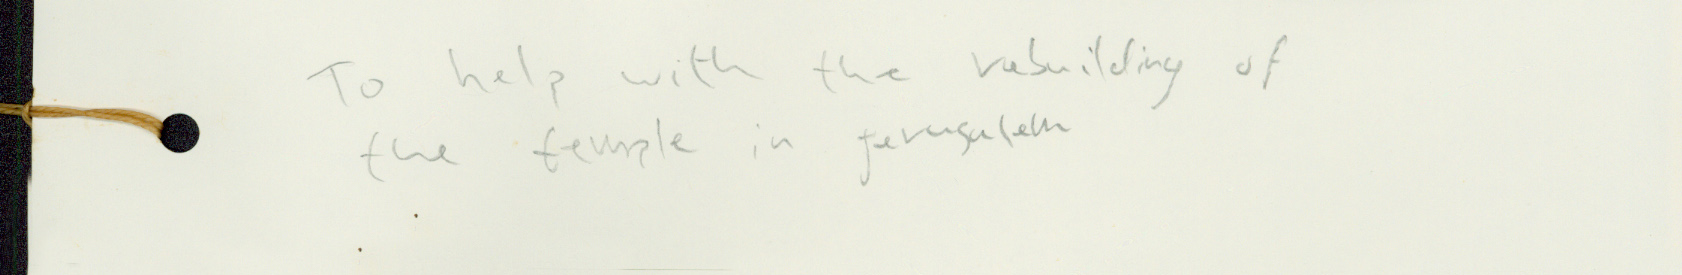 To help with the rebuilding of
the temple in jerusalem